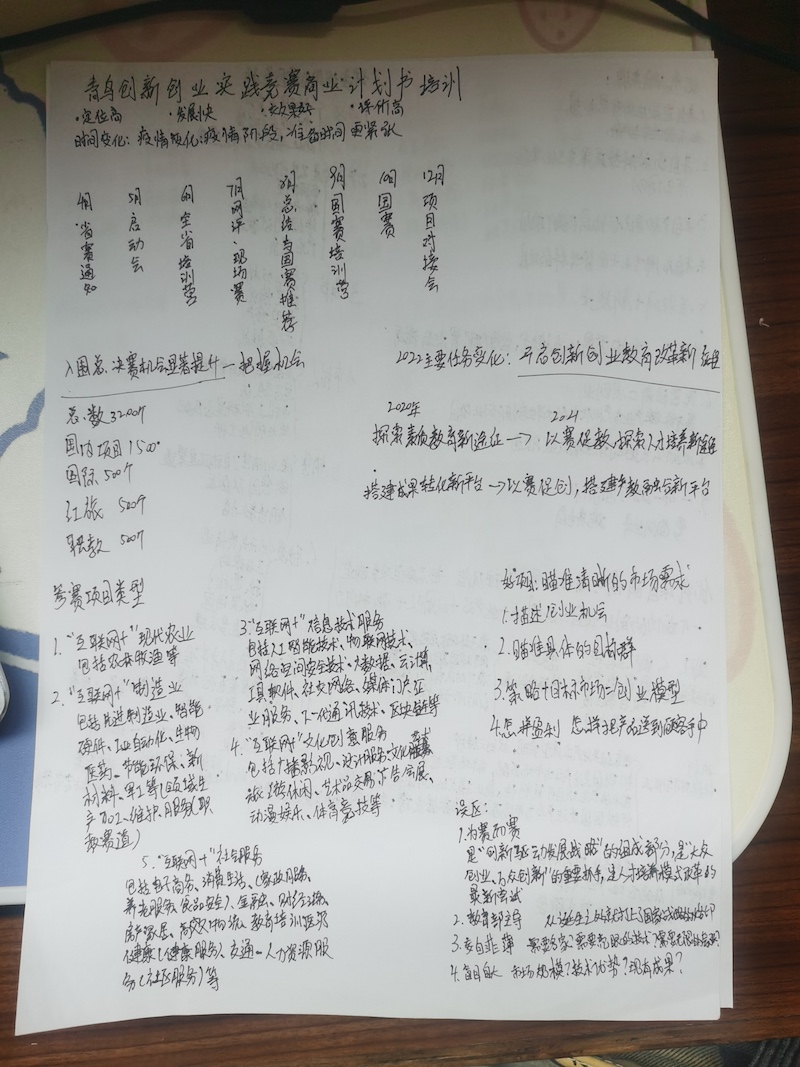 青鸟创新创业实践竞赛商业计划书培训
·定位高 ·发展快 ·评价高
时间变化：疫情阶段，准备时间更紧张
4月 省赛通知
5月 启动会
6月 全省培训营
7月 网评、现场赛
8月 总结与国赛推荐
9月 国赛培训营
10月 国赛
12月 项目对接会
入围总决赛机会显著提升—把握机会
总数3200个
国内项目1500
国际 500个
红旅 500个
职教 500个
2022主要任务变化：开启创新创业教育改革新征程
2020年 2021
探索素质教育新途径→以赛促教，探索人才培养新途径
搭建成果转化新平台→以赛促创，搭建产教融合新平台
参赛项目类型
1. "互联网+"现代农业
包括农林牧渔等
2. "互联网+"制造业
包括先进制造业、智能
硬件、工业自动化、生物
医药、节能环保、新
材料、军工等(领域生
产加工、维护、服务(职
教赛道)
3. "互联网+"信息技术服务
包括人工智能技术、物联网技术、
网络空间安全技术、大数据、云计算、
工具软件、社交网络、媒体门户、企
业服务、下一代通讯技术、区块链等
4. "互联网+"文化创意服务
包括广播影视、设计服务、文化艺术、
旅游休闲、艺术品交易、广告会展、
动漫娱乐、体育竞技等
5. "互联网+"社会服务
包括电子商务、消费生活、(家政服务、
养老服务、食品安全)、金融、财经法务、
房产家居、高效物流、教育培训、医疗
健康(健康服务)、交通、人力资源服
务(社区服务)等
好项目：瞄准清晰的市场需求
1. 描述创业机会
2. 瞄准具体的目标群
3. 策略+目标市场=创业模型
4. 怎样盈利 怎样把产品送到顾客手中
误区：
1. 为赛而赛
是"创新驱动发展战略"的组成部分，是"大众
创业、万众创新"的重要抓手，是人才培养模式改革的
最新尝试
2. 教育部主导 从诞生之处就打上了国家战略的烙印
3. 妄自菲薄 需要专家？需要先进的技术？
4. 盲目自大 市场规模？技术优势？现有成果？